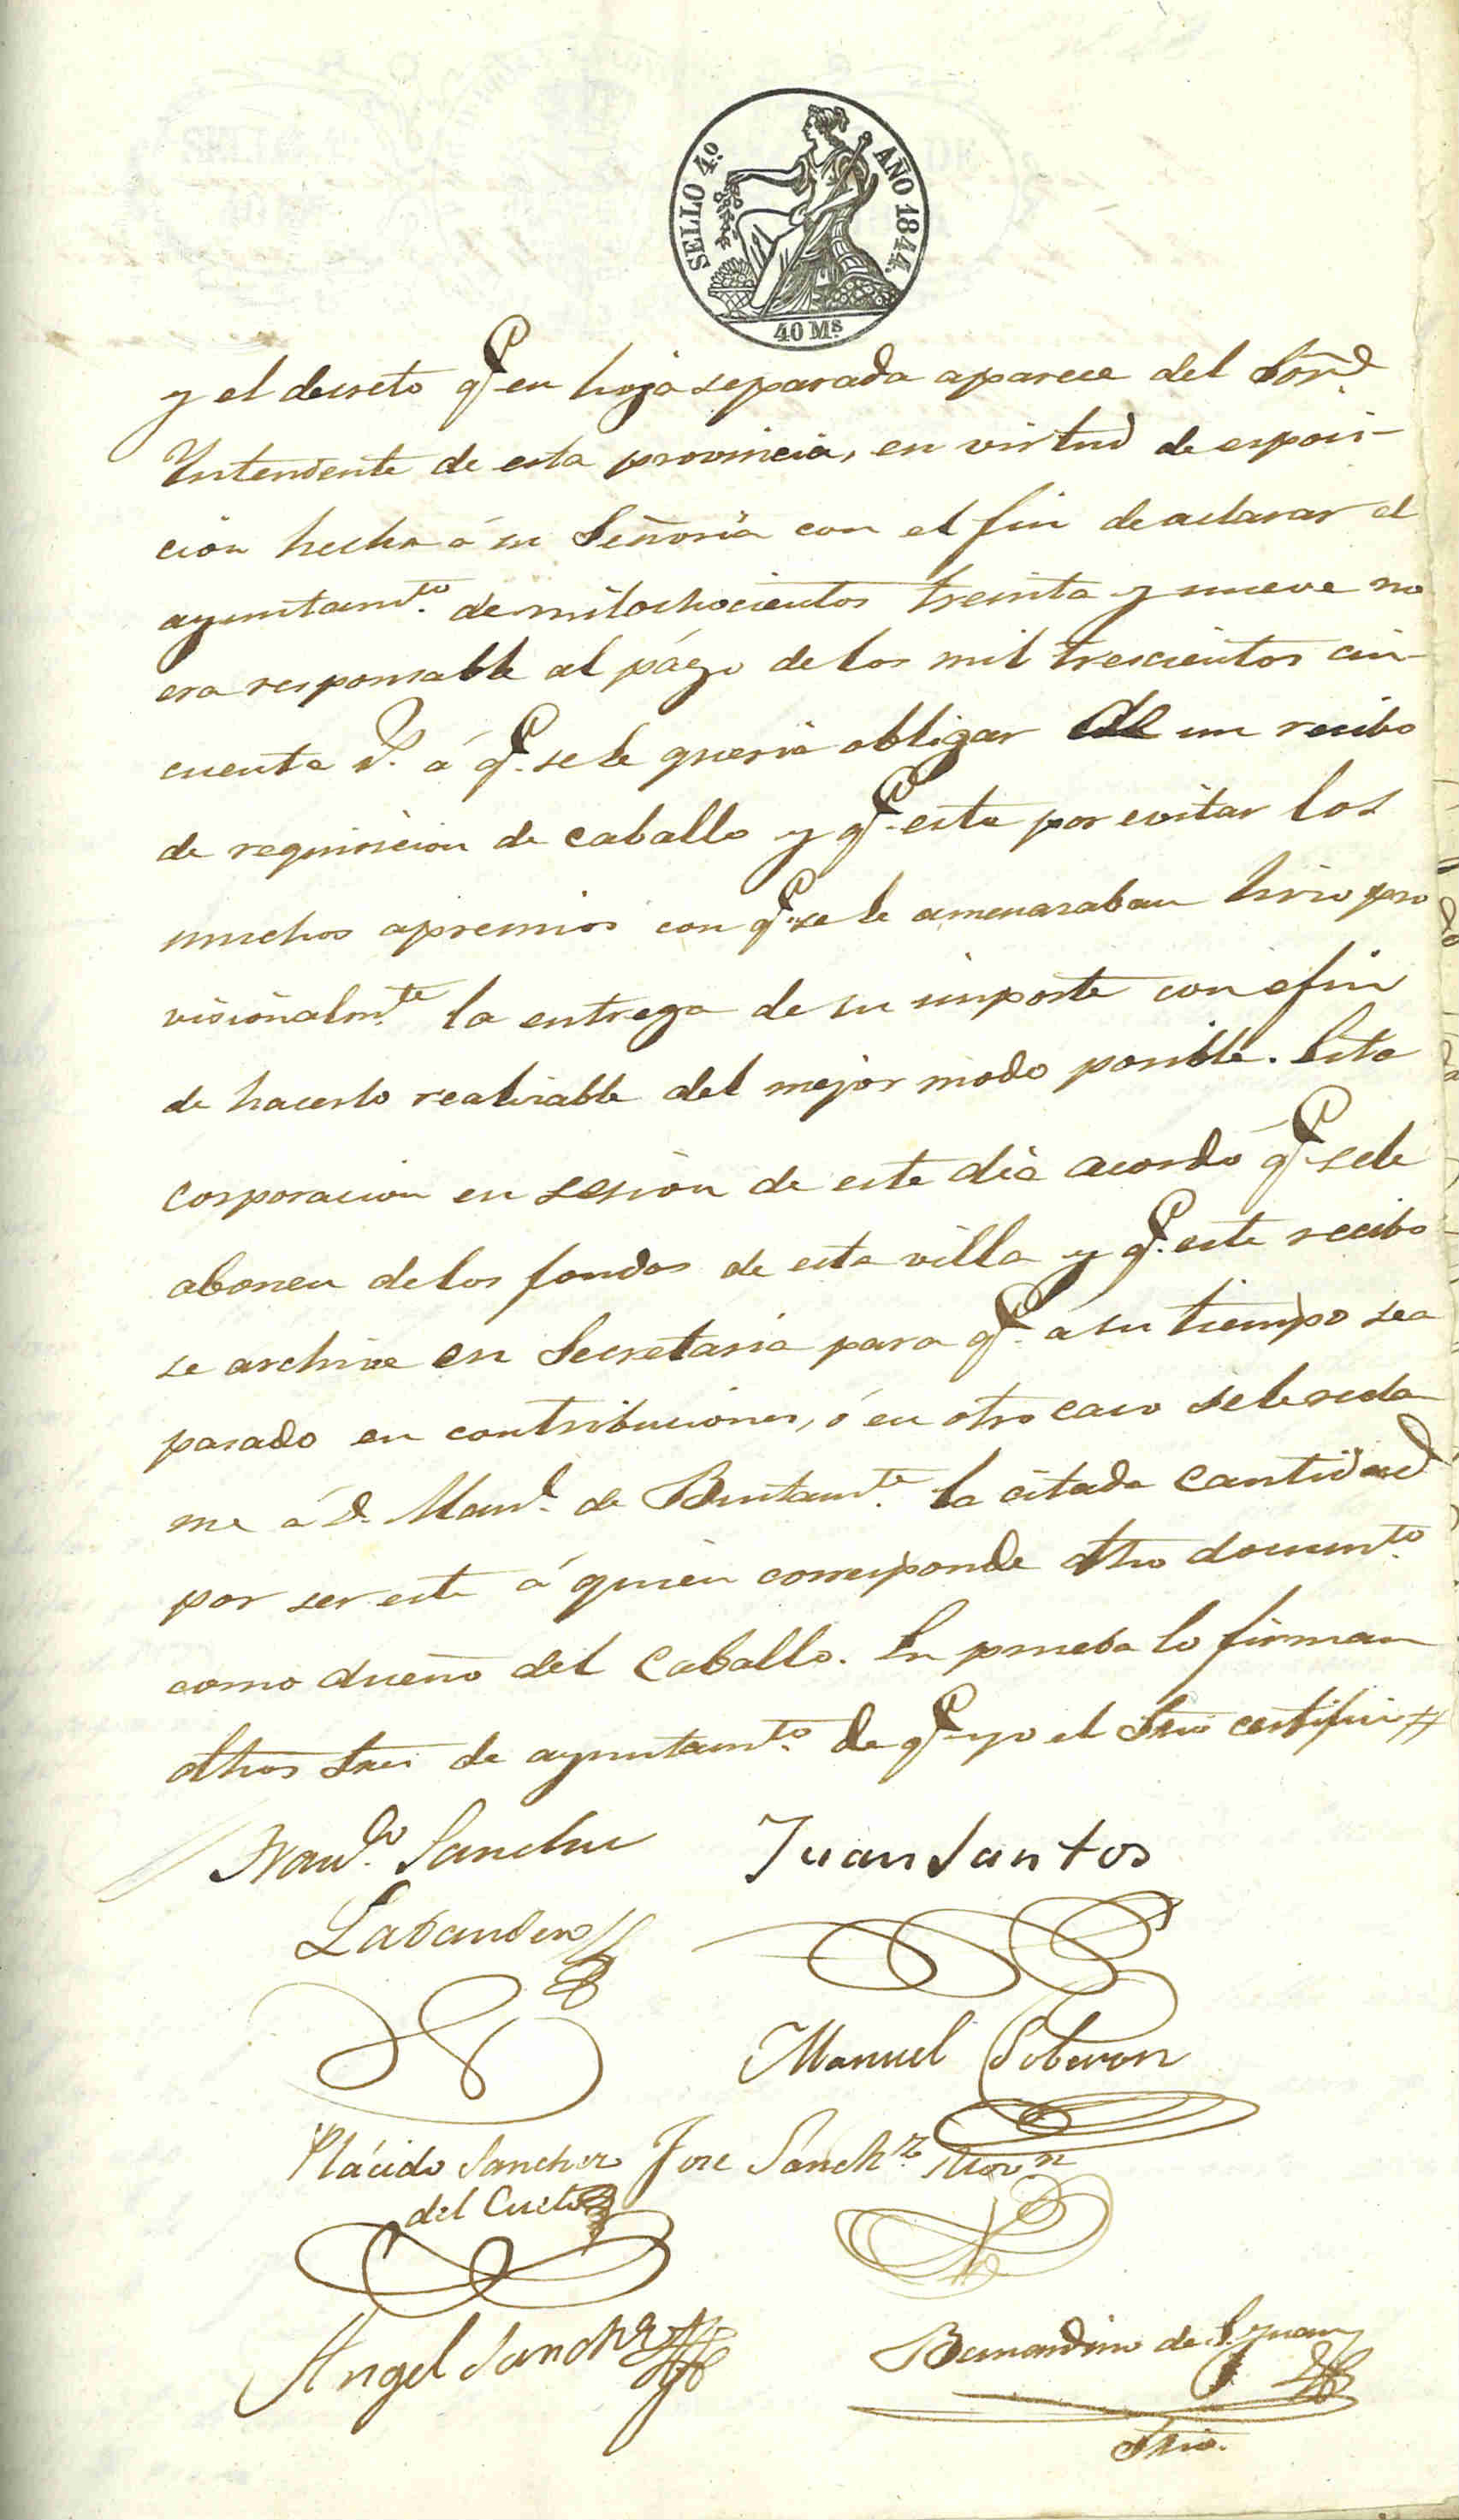 SELLO 4º AÑO 1844.
40 Ms
y el decreto q.e en hoja separada aparece del Sor.
Yntendente de esta provincia, en virtud de esposi-
cion hecha á su Señoria con el fin de aclarar el
ayuntamto. de mil ochocientos treinta y nueve no
era responsable al págo de los mil trescientos cin-
cuenta r.s á q.e se le queria obligar de un recibo
de requisicion de caballo y q.e este por evitar los
muchos apremios con q.e se le amenazaban hizo pro
visionalmte. la entrega de su importe con el fin
de hacerlo realizable del mejor modo posible. Esta
corporacion en sesion de este dia acordó q.e se le
abonen de los fondos de esta villa y q.e este recibo
se archive en Secretaria para q.e a su tiempo sea
pasado en contribuciones, ó en otro caso se le recla
me á D. Manl. de la citada cantidad
por ser este á quien corresponde dho documto.
como dueño del Caballo. En prueba lo firman
dhos Sres de ayuntamto. de q.e yo el Srio certifico
Franco. Sanchez Juan Santos
Labandero
Manuel Soberon
Plácido Sanchez Jose Sanchz.
del Cueto
Angel Sanchz
Bernardino de S. Juan
Srio.